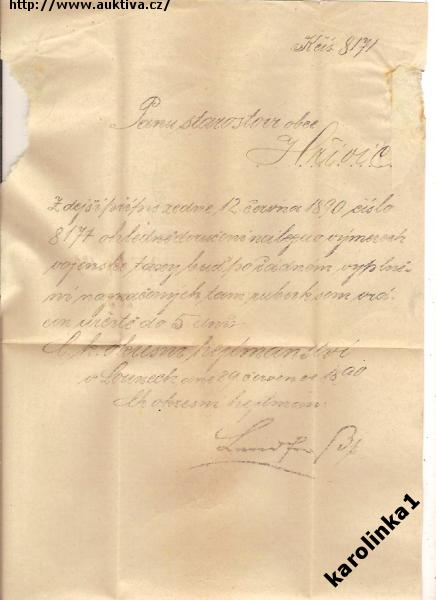 http://www.auktiva.cz/
K čís 8171
Panu starostovi obce
Hřivic.
Zdejší přípis ze dne 12 června 1890 číslo
8177 ohledně doručení o výměrech
vojenské taxy buď po žádném vyplně-
ní naznačených tam rubrik sem vrá-
cen určitě do 5 dnů.
C. k. okresní hejtmanství
v Lounech, dne 29 červen 1890
okresní hejtman:
karolinka1